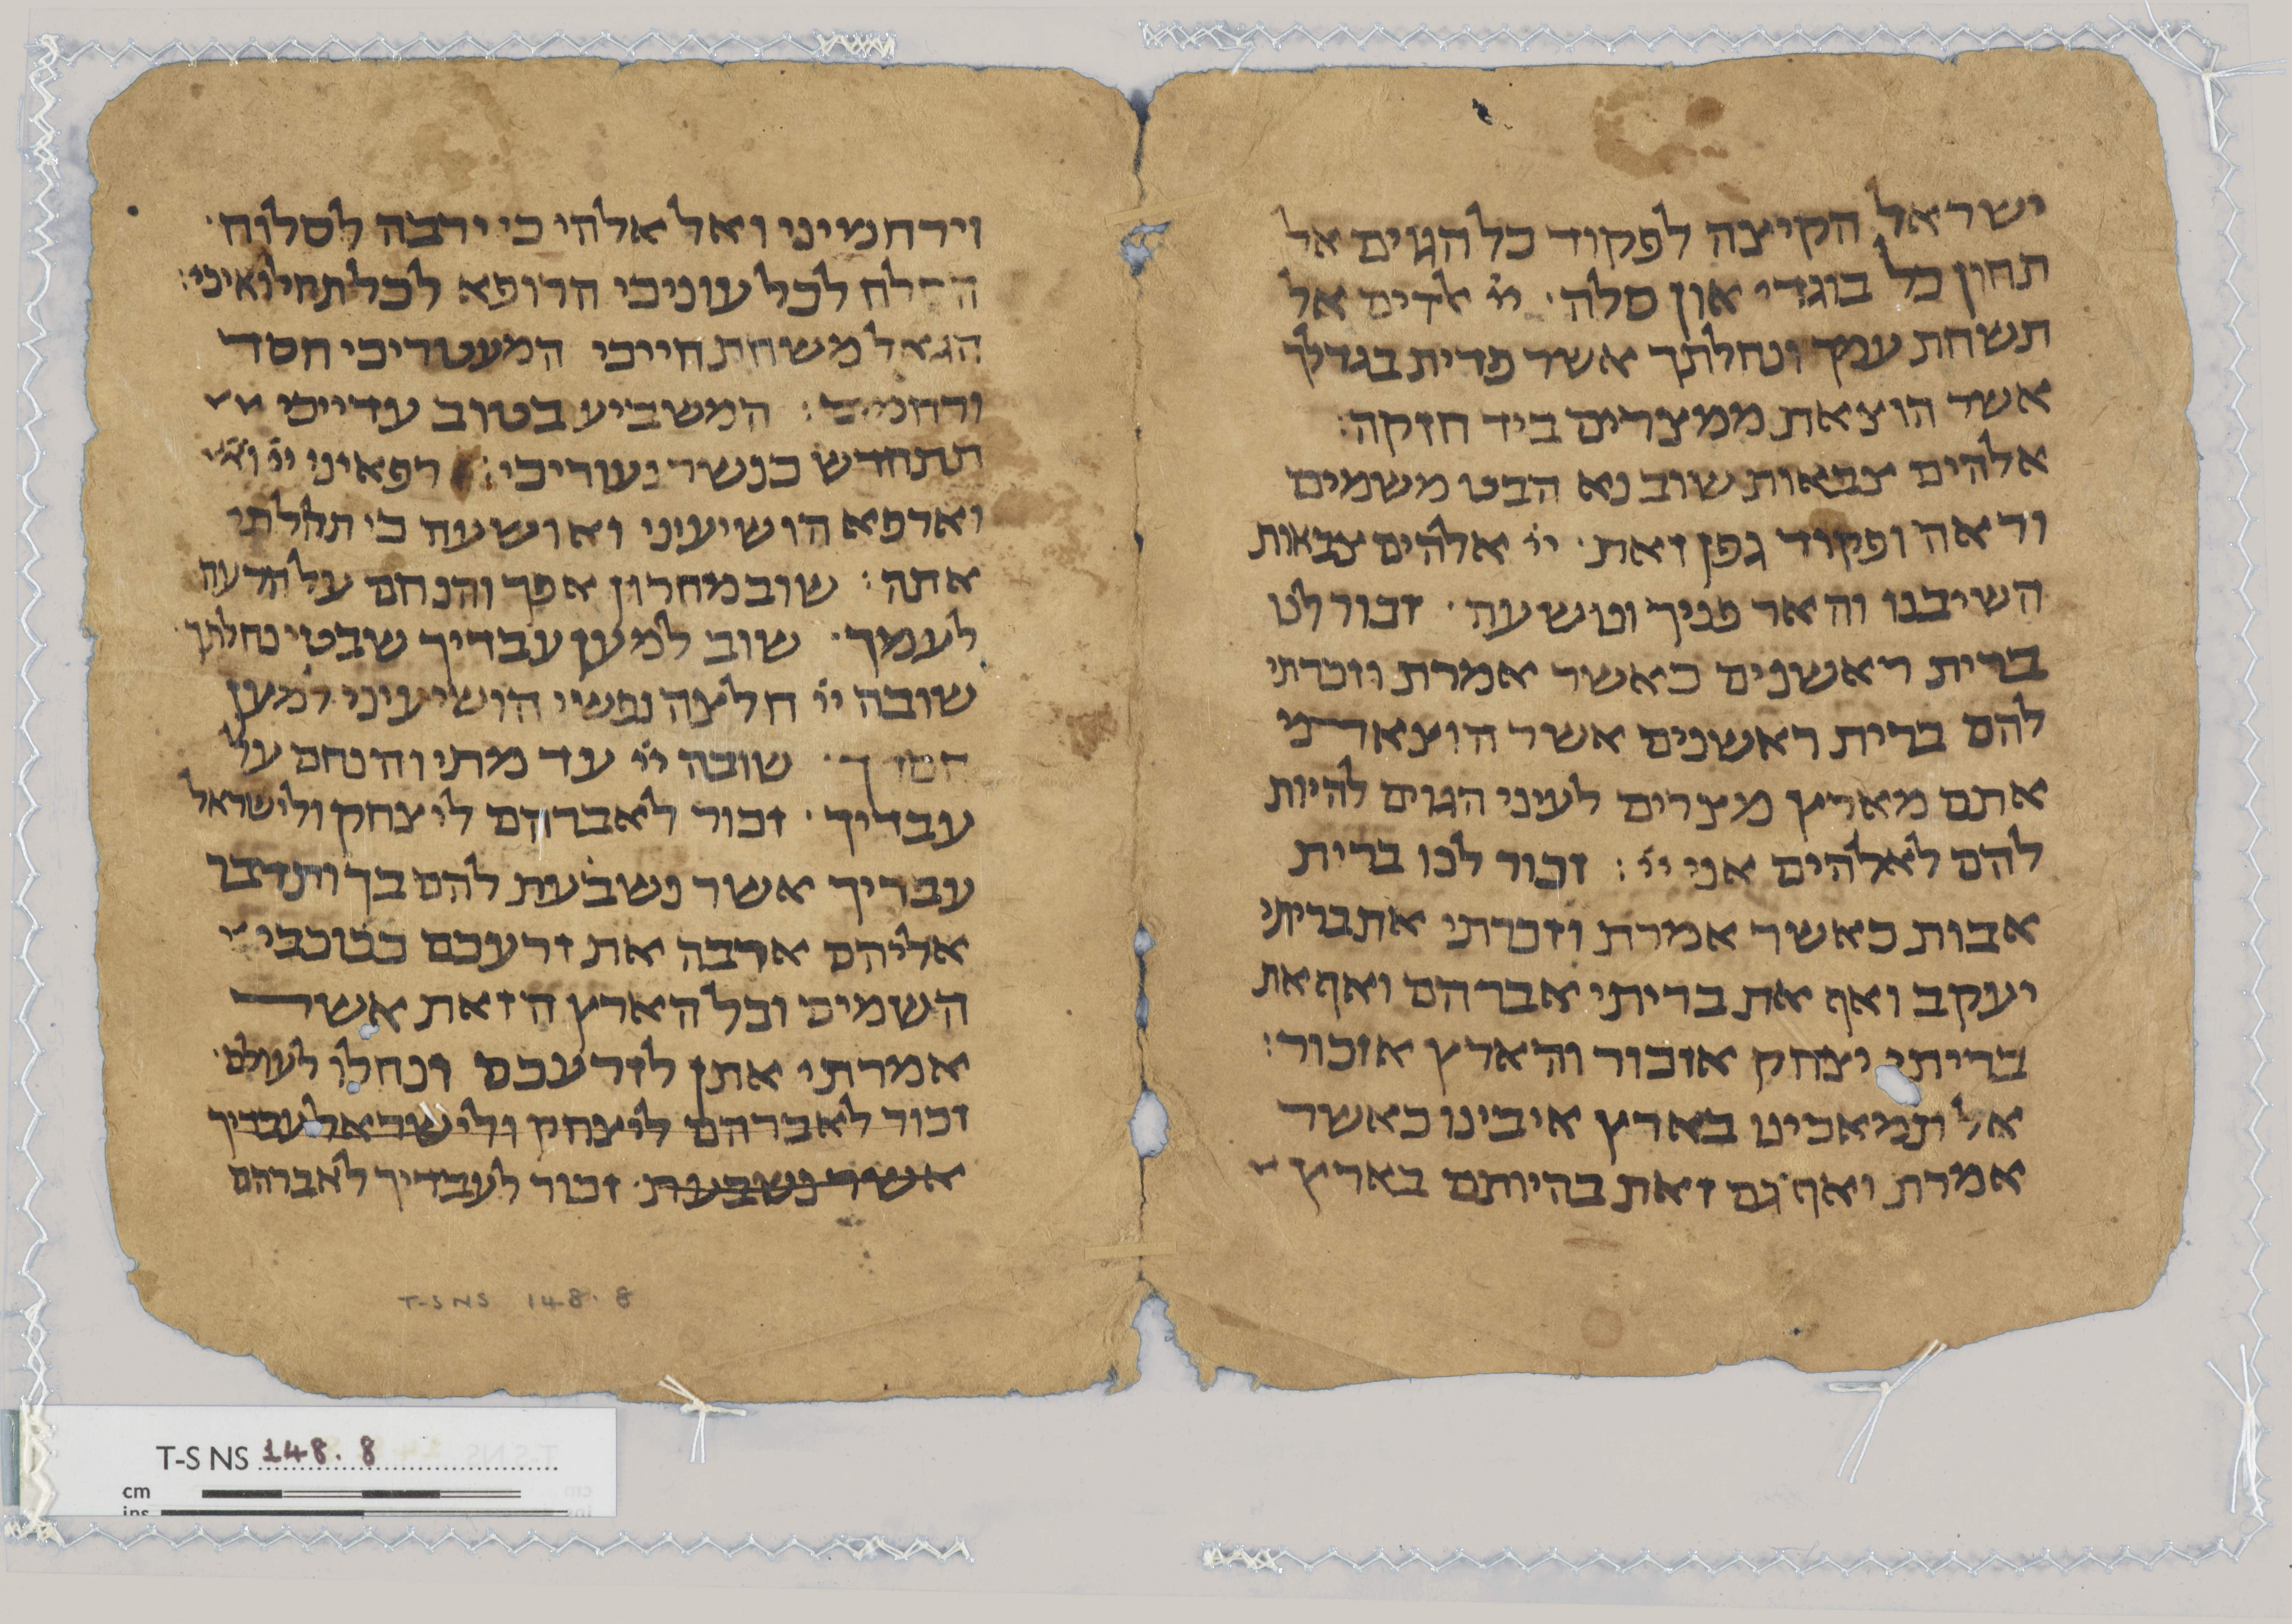 ישראל הקיצה לפקוד כל הגוים אל
תחון כל בוגדי און סלה· ייֹ אלהים אל
תשחת עמך ונחלתך אשר פדית בגדלך
אשר הוצאת ממצרים ביד חזקה:
אלהים צבאות שוב נא הבט משמים
וראה ופקוד גפן זאת· ייֹ אלהים צבאות
השיבנו והאר פניך ונושעה· זכור לנו
ברית ראשנים כאשר אמרת וזכרתי
להם ברית ראשנים אשר הוצאתי
אתם מארץ מצרים לעיני הגוים להיות
להם לאלהים אני ייֹ: זכור לנו ברית
אבות כאשר אמרת וזכרתי את בריתי
יעקב ואף את בריתי אברהם ואף את
בריתי יצחק אזכור והארץ אזכור:
אל תמאסינו בארץ איבינו כאשר
אמרת ואף גם זאת בהיותם בארץ
וירחמיני ואל אלהי כי ירבה לסלוח·
הסלח לכל עוניכי הרופא לכל תחלואיכי:
הגואל משחת חייכי המעטריכי חסד
ורחמים: המשביע בטוב עדייכי
תתחדש כנשר נעוריכי: רפאיני ייֹ
וארפא הושיעיני ואושעה כי תהלתי
אתה: שוב מחרון אפך והנחם על הרעה
לעמך· שוב למען עבדיך שבטי נחלתך·
שובה ייֹ חלצה נפשי הושיעיני למען
חסדך· שובה ייֹ עד מתי והנחם על
עבדיך· זכור לאברהם ליצחק ולישראל
עבדיך אשר נשבעת להם בך ותדבר
אליהם ארבה את זרעכם ככוכבי
השמים וכל הארץ הזאת אשר
אמרתי אתן לזרעכם ונחלו לעולם·
זכור לאברהם ליצחק ולישראל עבדיך
אשר נשבעת· זכור לעבדיך לאברהם
T-S NS 148.8
T-S NS 148.8
cm
ins